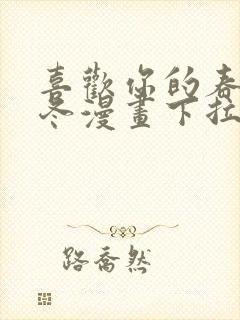 喜歡你的春
冬漫畫下拉
路喬然